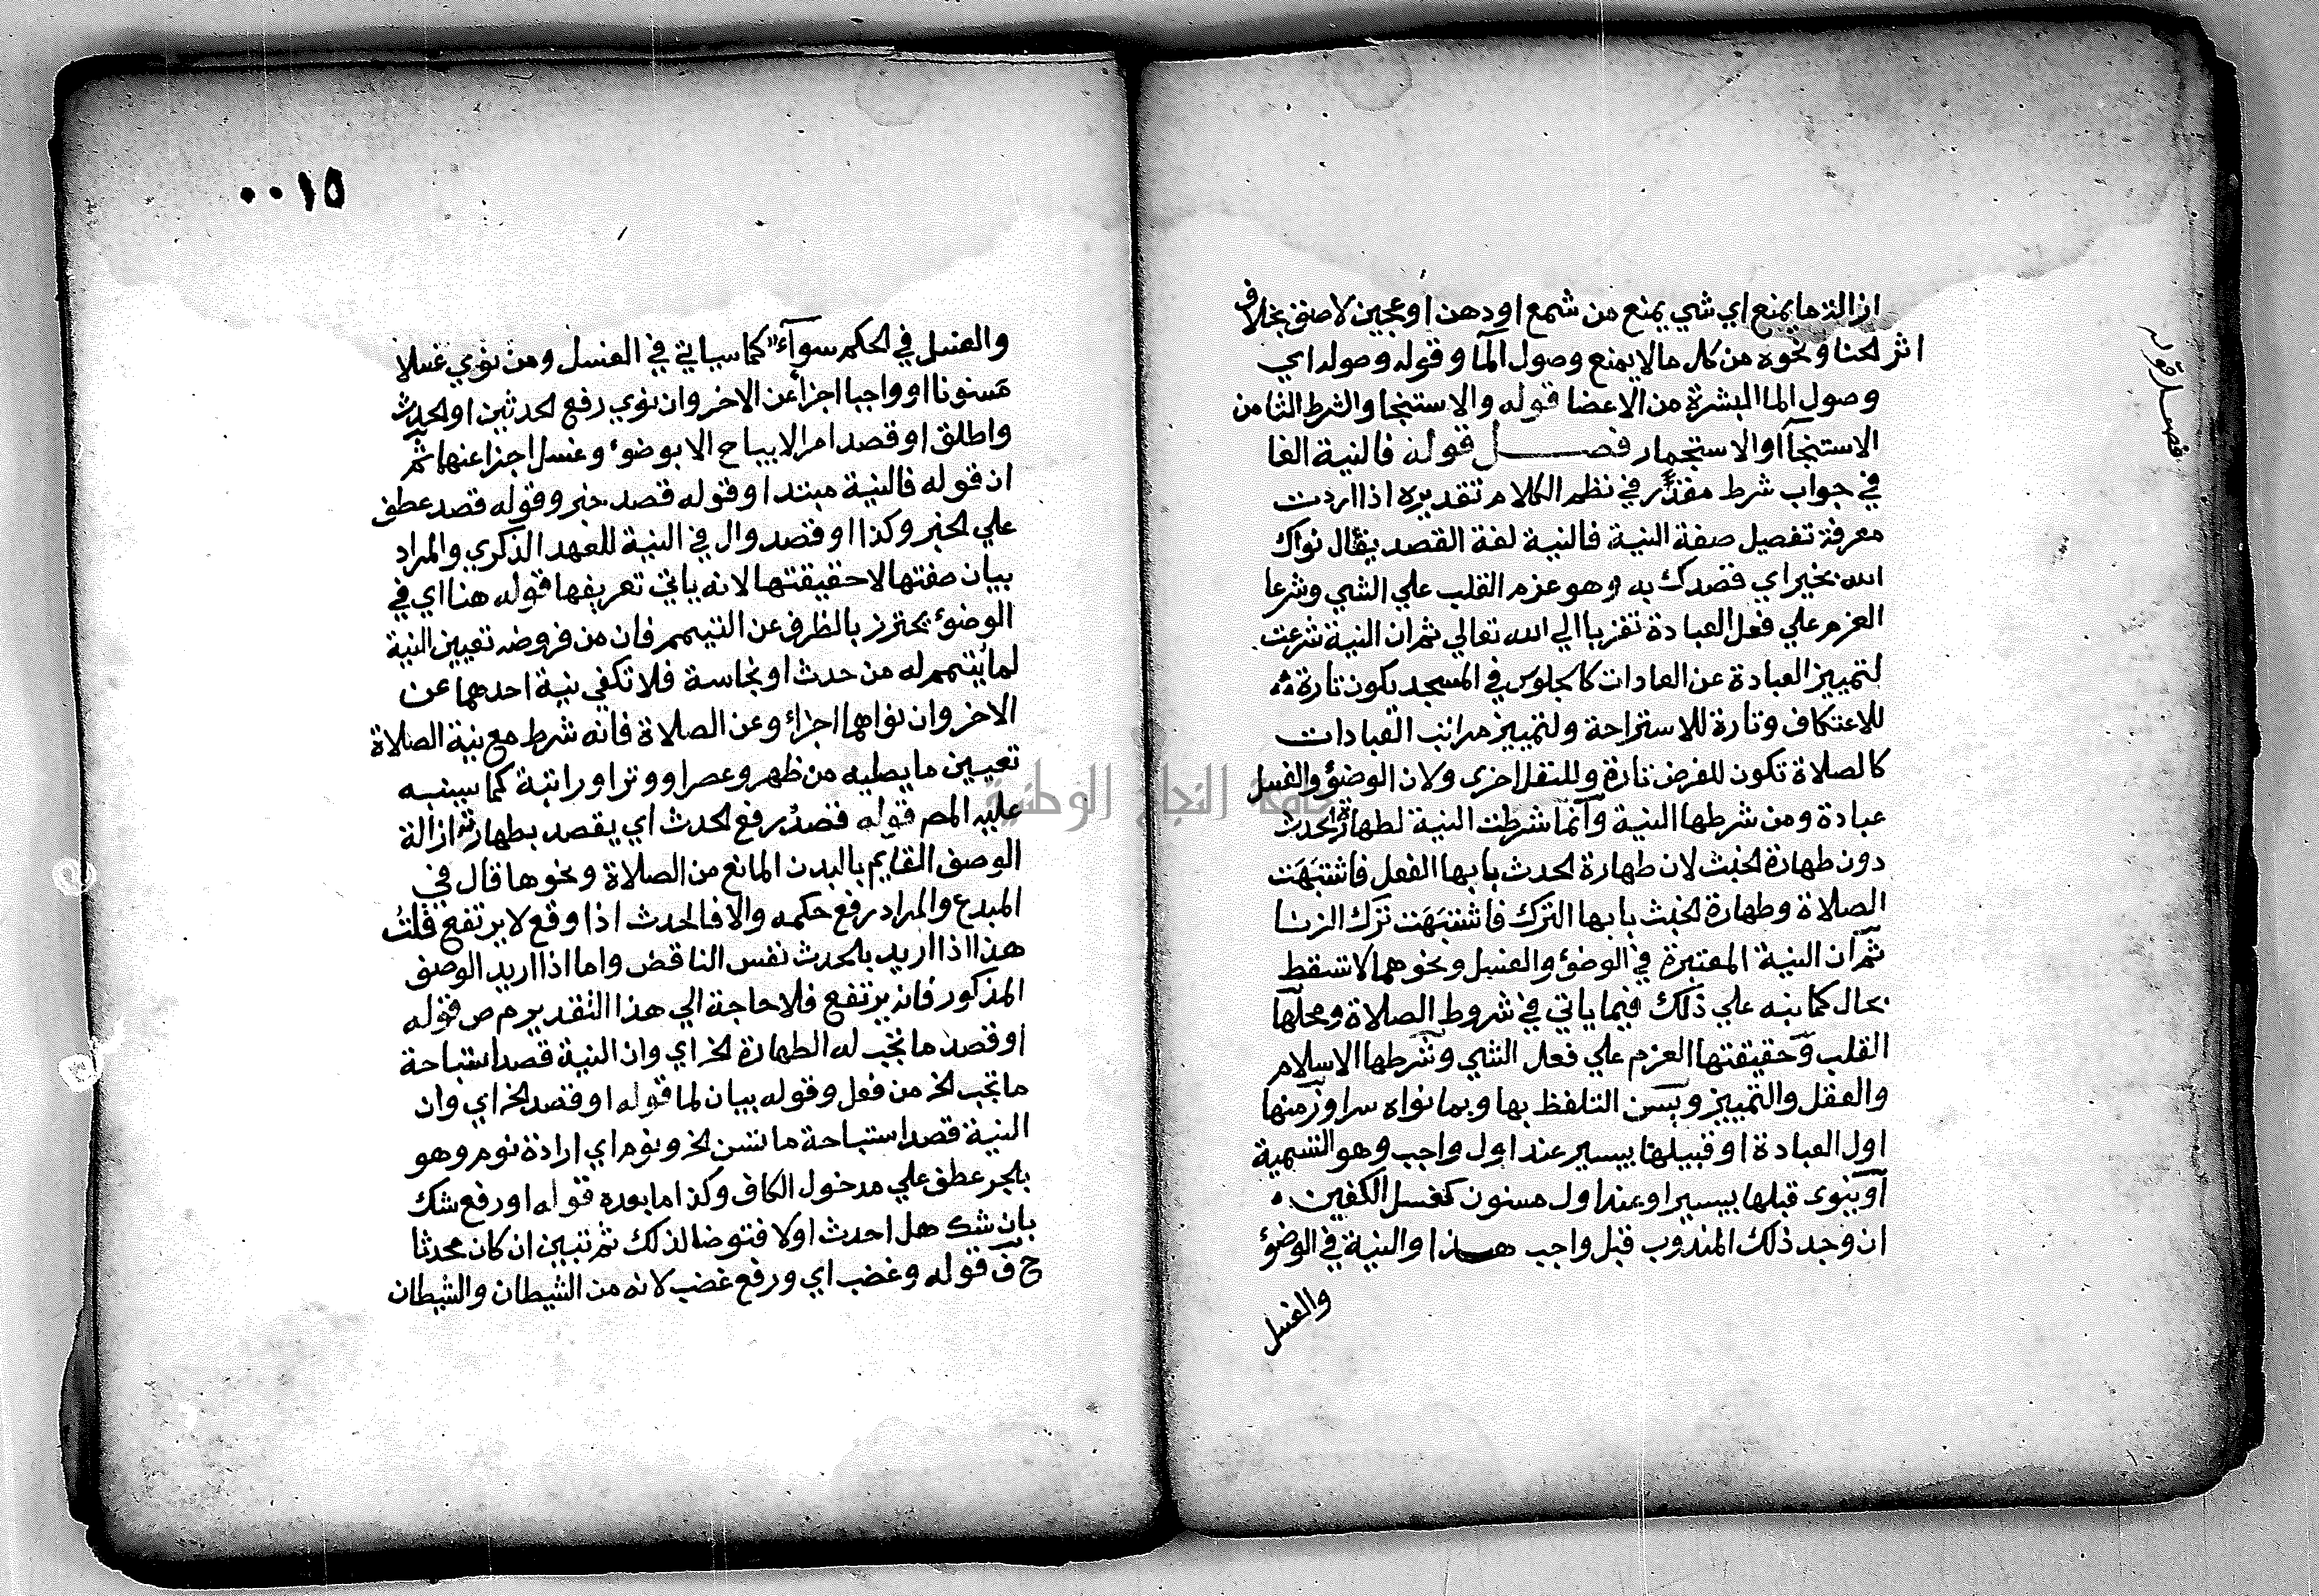 ازالة ما يمنع اي شي يمنع من شمع او دهن او عجين لاصق بخلاف
اثر الحنا ونحوه من كل مالا يمنع وصول المآ وقوله وصوله اي
وصول الما البشرة من الاعضا قوله والاستنجا والشرط الثامن
الاستنجآ او الاستجمار فصـــل قوله فالنية الفا
في جواب شرط مقدّر في نظم الكلام تقديره اذا اردت
معرفة تفصيل صفة النية فالنية لغة القصد يقال نواك
الله بخير اي قصدك به وهو عزم القلب علي الشي وشرعا
العزم علي فعل العبادة تقربا الي الله تعالي ثم ان النية شرعت
لتمييز العبادة عن العادات كالجلوس في المسجد يكون تارة
للاعتكاف وتارة للاستراحة ولتمييز مراتب العبادات
كالصلاة تكون للفرض تارة وللنفل اخري ولان الوضوٴ والغسل
عبادة ومن شرطها النية وآنما شرطت النية لطهارة الحدث
دون طهارة الخبث لان طهارة الحدث بابها الفعل فاشتبهَت
الصلاة وطهارة الخبث بابها الترك فاشتبهَت ترك الزنا
ثم ان النية المعتبرة في الوضوٴ والغسل ونحوهما لا تسقط
بحال كما نبه علي ذلك فيما ياتي في شروط الصلاة ومحلها
القلب وحقيقتها العزم علي فعل الشي وشرطها الاسلام
والعقل والتمييز ويسن التلفظ بها وبما نواه سرا وزمنها
اول العبادة او قبيلها بيسير عند اول واجب وهو التسمية
آو ينوي قبلها بيسير او عند اول مسنون كغسل الكفين
ان وجد ذلك المندوب قبل واجب هـــذا والنية في الوضوٴ
والغسل
فصل قوله
٠٠١٥
والغسل في الحكم سوآء كما سياتي في الغسل ومن نوي غسلا
مَسنونا او واجبا اجزأ عن الاخر وان نوي رفع الحدثين او الحدث
واطلق او قصد امر الا يباح الا بوضوٴ وغسل اجزا عنهما ثم
ان قوله فالنية مبتدا وقوله قصد خبر وقوله قصد عطف
علي الخبر وكذا او قصد وال في النية للعهد الذكري والمراد
بيان صفتها لا حقيقتها لانه ياتي تعريفها قوله هنا اي في
الوضوٴ يحترز بالظرف عن التيمم فان من فروضه تعيين النية
لما يُتيمم له من حدث او نجاسة فلا تكفي نية احدهما عن
الاخر وان نواهما اجزاء وعن الصلاة فانه شرط مع نية الصلاة
تعيين ما يصليه من ظهر وعصر او وترا وراتبة كما سينبه
عليه المصـ قوله قصدُ رفع الحدث اي يقصد بطهارته ازالة
الوصف القايم بالبدن المانع من الصلاة ونحوها قال في
المبدع والمراد رفع حكمه والا فالحدث اذا وقع لا يرتفع قلتُ
هذا اذا اريد بالحدث نفس الناقض واما اذا اريد الوصف
المذكور فانه يرتفع فلا حاجة الي هذا التقدير م ص قوله
او قصد ما تجب له الطهارة الخ اي وان النية قصد استباحة
ما تجب الخ من فعل وقوله بيان لما قوله او قصد الخ اي وان
النية قصد استباحة ما تسن الخ ونوم اي ارادة نوم وهو
بالجر عطف علي مدخول الكاف وكذا ما بعده قوله او رفع شك
بان شك هل احدث اولا فتوضا لذلك ثم تبين ان كان محدثا
ح ف قوله وغضب اي ورفع غضب لانه من الشيطان والشيطان
جامعة النجاح الوطنية